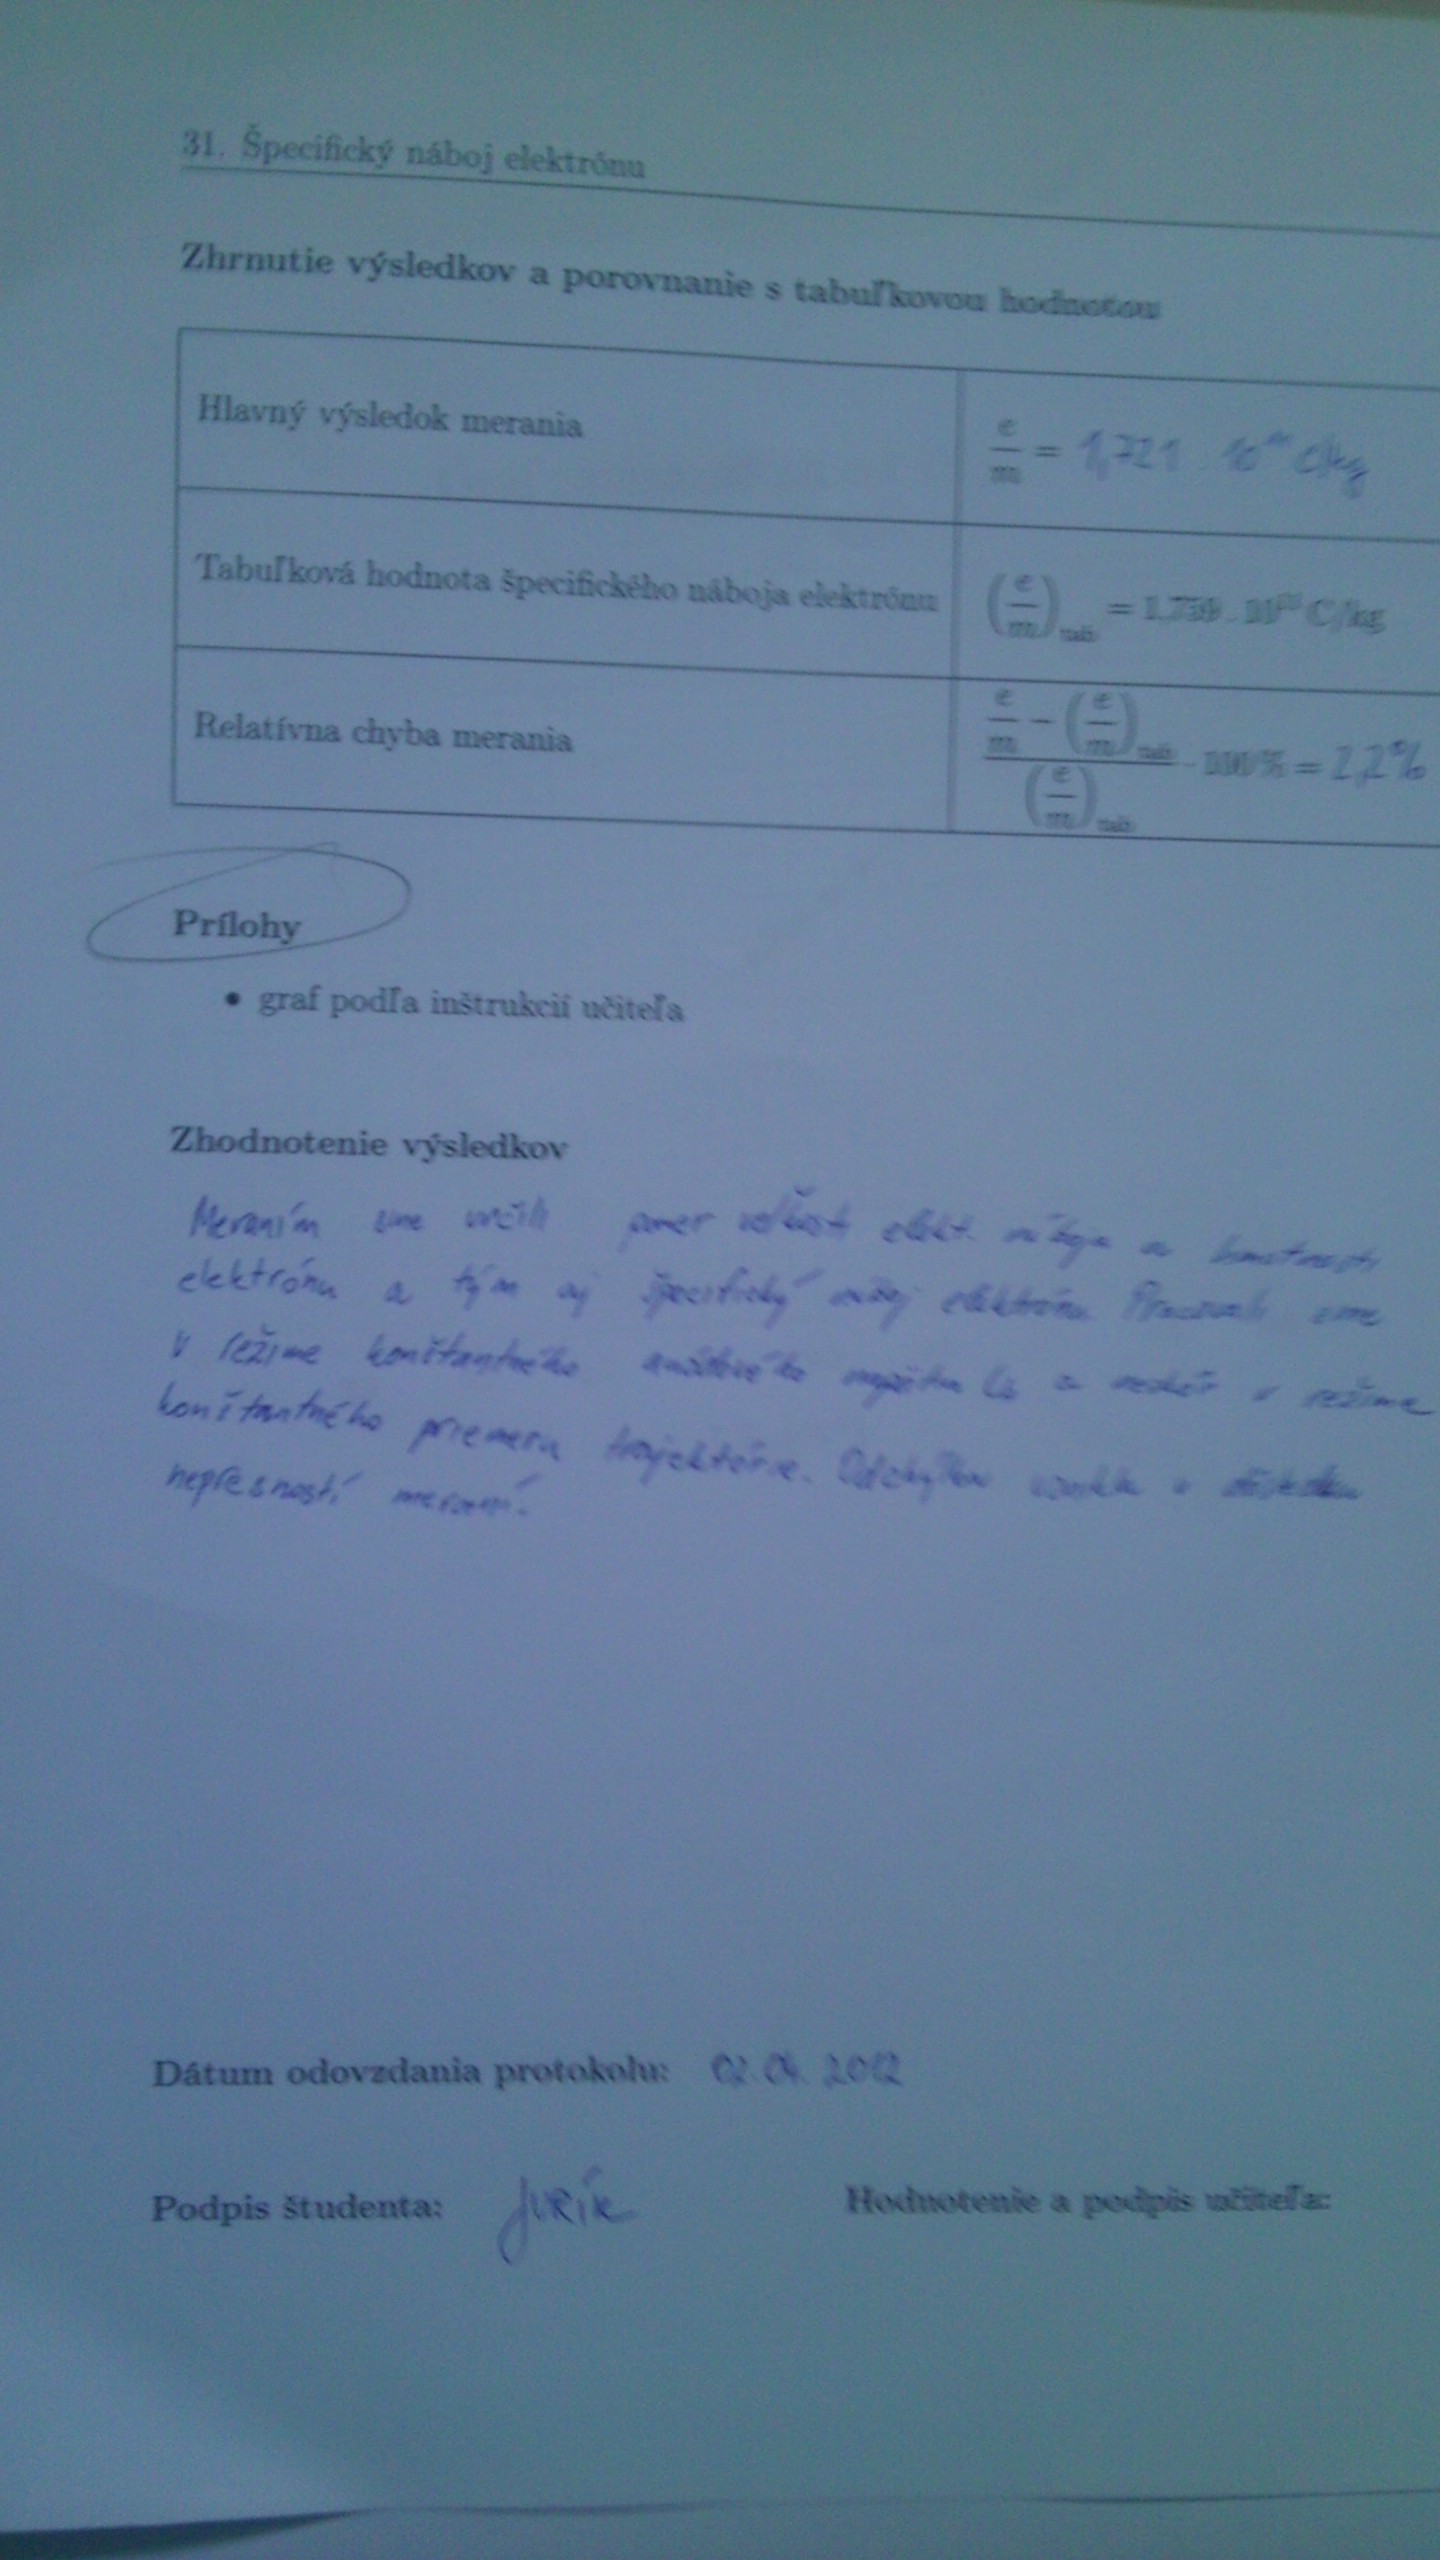 31. Špecifický náboj elektrónu
Zhrnutie výsledkov a porovnanie s tabuľkovou hodnotou
Hlavný výsledok merania
e/m = 1,721 · 10¹¹ C/kg
Tabuľková hodnota špecifického náboja elektrónu
(e/m)tab = 1,759 · 10¹¹ C/kg
Relatívna chyba merania
(e/m − (e/m)tab) / (e/m)tab · 100 % = 2,2%
Prílohy
• graf podľa inštrukcií učiteľa
Zhodnotenie výsledkov
Meraním sme určili pomer veľkosti elekt. náboja a hmotnosti
elektrónu a tým aj špecifický náboj elektrónu. Pracovali sme
v režime konštantného anódového napätia a neskôr v režime
konštantného priemeru trajektórie. Odchýlka vznikla v dôsledku
nepresností meraní.
Dátum odovzdania protokolu: 02.04.2012
Podpis študenta: Jurík
Hodnotenie a podpis učiteľa: